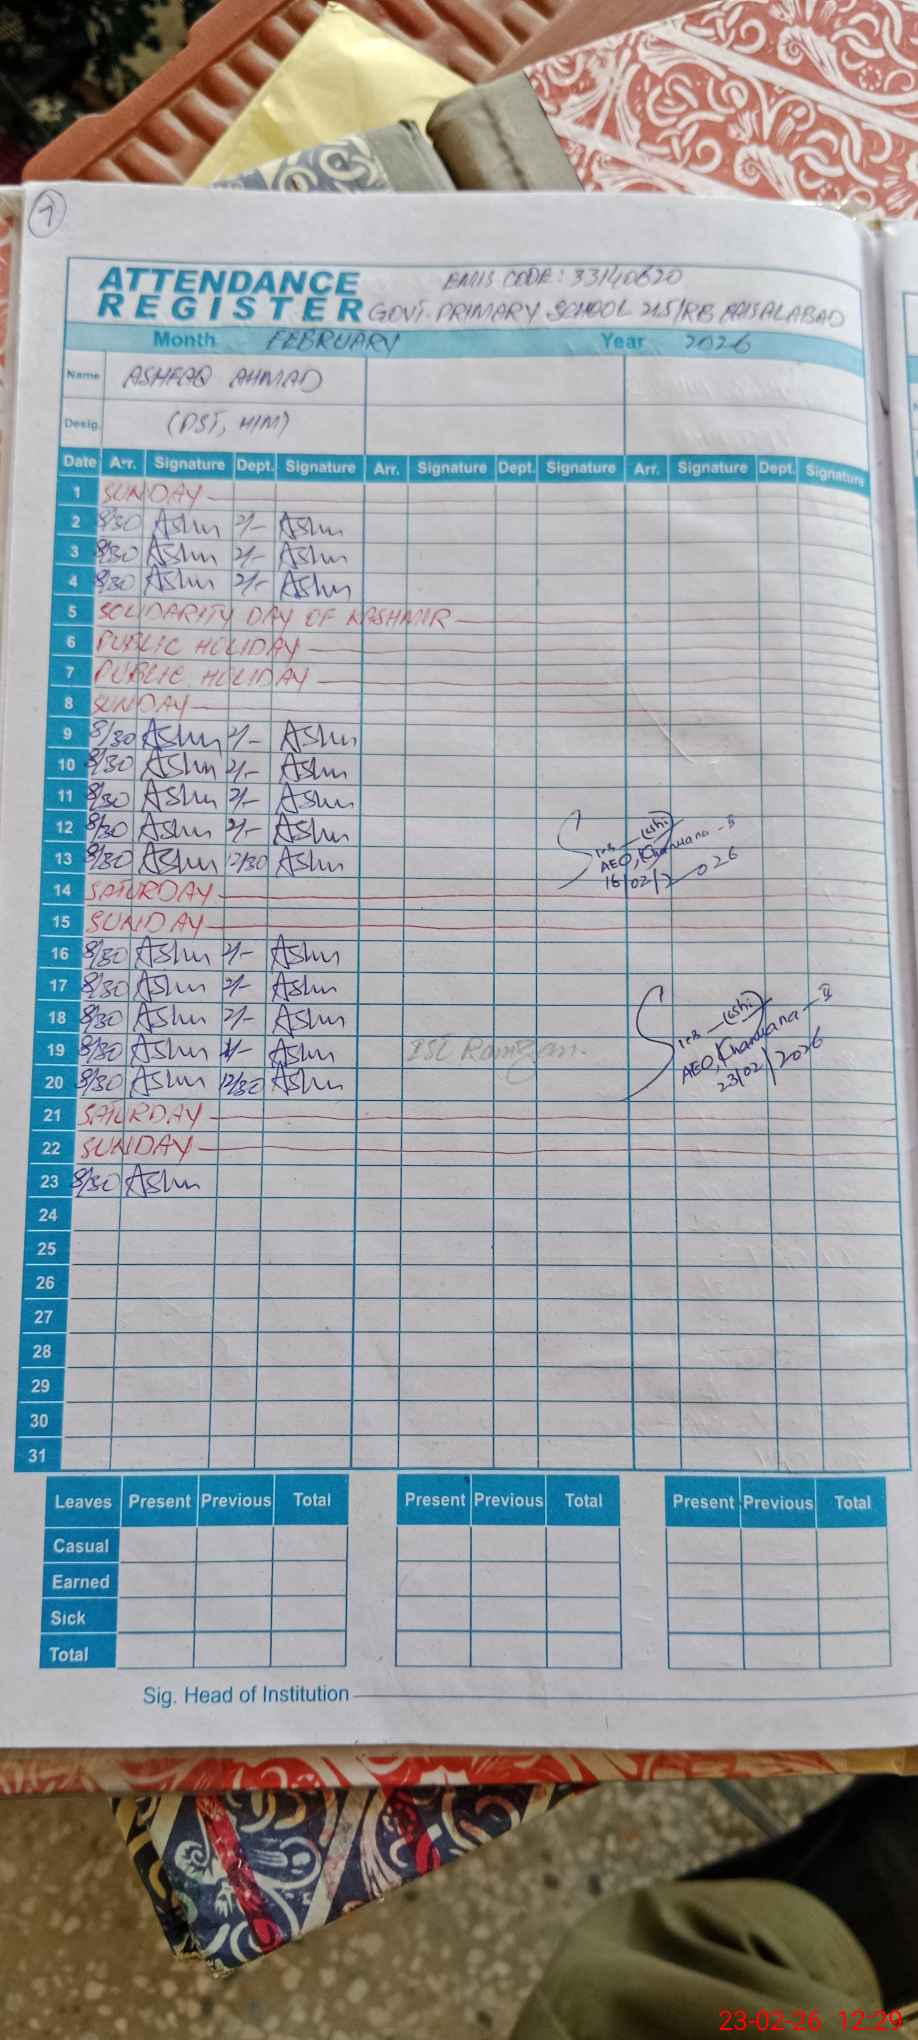 7
ATTENDANCE REGISTER
EMIS CODE: 33140620
GOVT. PRIMARY SCHOOL 215/RB FAISALABAD
Month FEBRUARY Year 2026
Name ASHFAQ AHMAD
Desig. (PST, H/M)
Date Arr. Signature Dept. Signature Arr. Signature Dept. Signature Arr. Signature Dept. Signature
1 SUNDAY
2 8/30 Ashu 2/- Ashu
3 8/30 Ashu 2/- Ashu
4 8/30 Ashu 2/- Ashu
5 SOLIDARITY DAY OF KASHMIR
6 PUBLIC HOLIDAY
7 PUBLIC HOLIDAY
8 SUNDAY
9 8/30 Ashu 2/- Ashu
10 8/30 Ashu 2/- Ashu
11 8/30 Ashu 2/- Ashu
12 8/30 Ashu 2/- Ashu
13 8/30 Ashu 12/30 Ashu
AEO, Khanuana - II
16/02/2026
14 SATURDAY
15 SUNDAY
16 8/30 Ashu 2/- Ashu
17 8/30 Ashu 2/- Ashu
18 8/30 Ashu 2/- Ashu
19 8/30 Ashu Ashu 1st Ramzan.
20 8/30 Ashu 12/30 Ashu
AEO, Khanuana - II
23/02/2026
21 SATURDAY
22 SUNDAY
23 8/30 Ashu
24
25
26
27
28
29
30
31
Leaves Present Previous Total Present Previous Total Present Previous Total
Casual
Earned
Sick
Total
Sig. Head of Institution
23-02-26 12:29